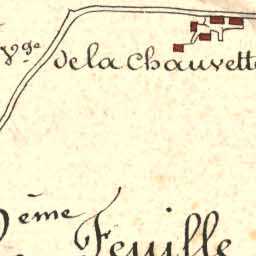 Vge de la Chauvett
ème Feuille